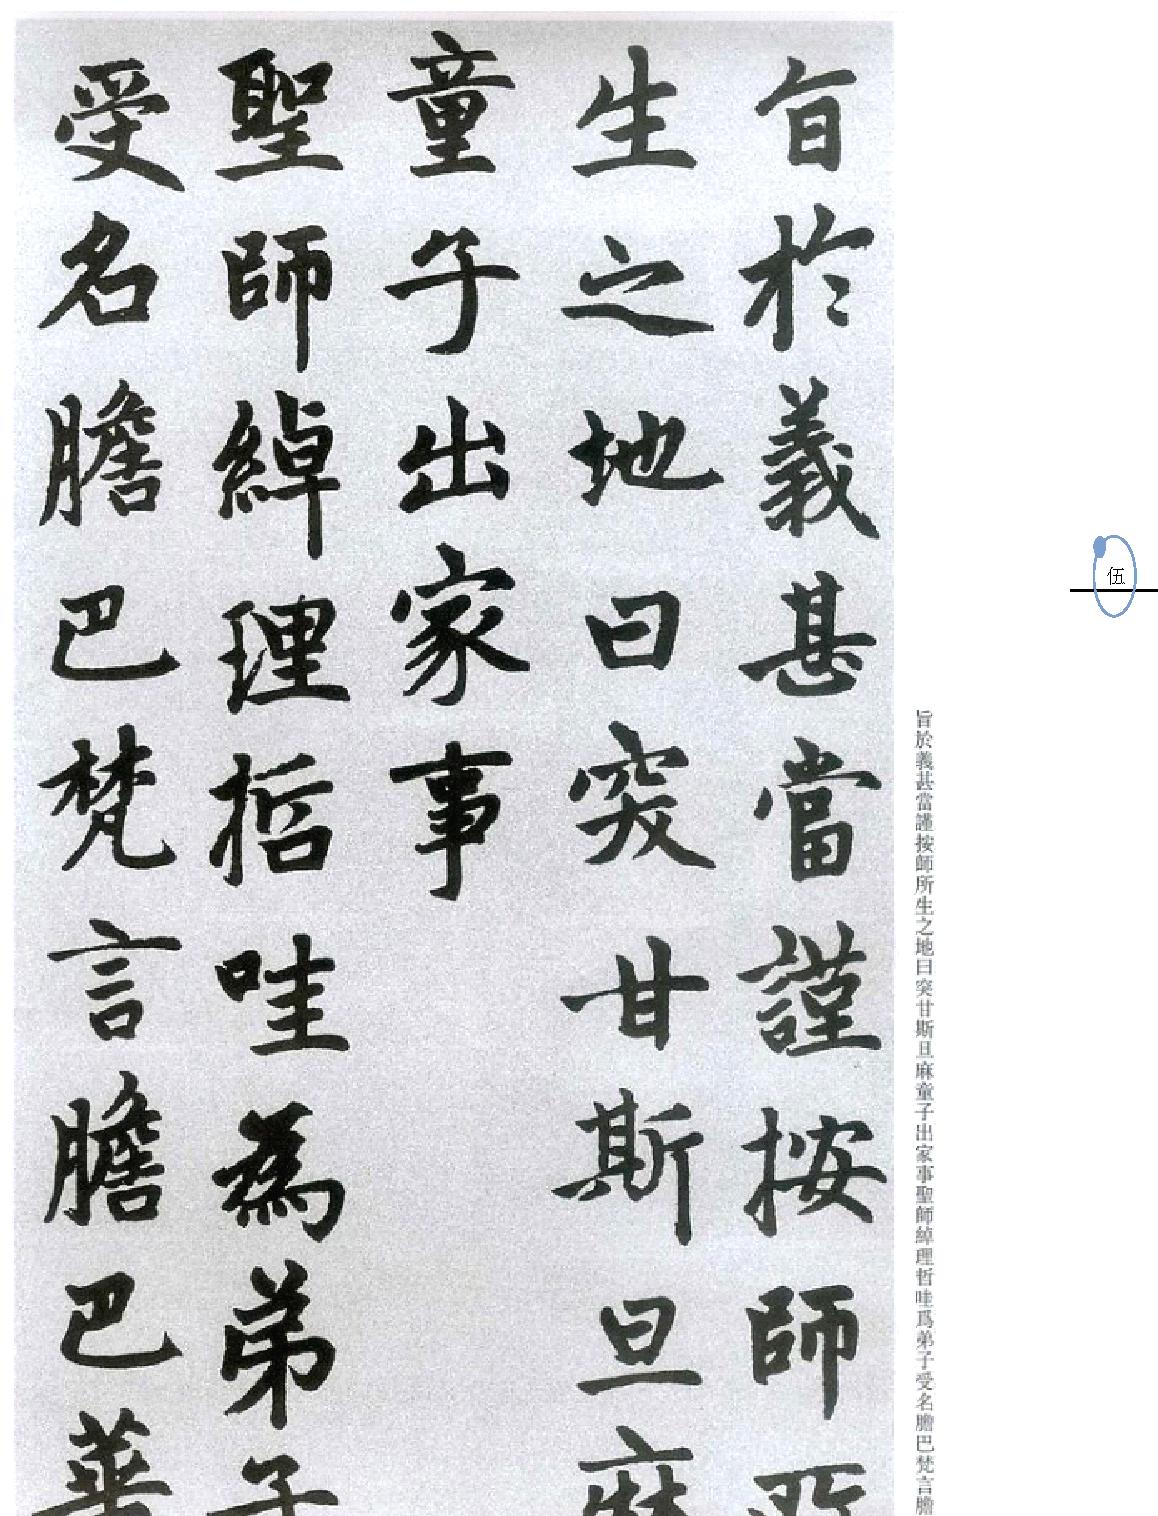 旨於義甚當謹按師所
生之地曰突甘斯旦麻
童子出家事
聖師綽理哲哇為弟子
受名膽巴梵言膽巴華
旨於義甚當謹按師所生之地曰突甘斯旦麻童子出家事聖師綽理哲哇爲弟子受名膽巴梵言膽
伍